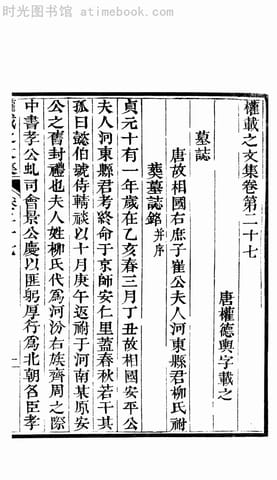 时光图书馆 · atimebook.com
權載之文集卷第二十七
唐權德輿字載之
墓誌
唐故相國右庶子崔公夫人河東縣君柳氏祔
葬墓誌銘并序
貞元十有一年歲在乙亥春三月丁丑故相國安平公
夫人河東縣君考終命于京師安仁里蓋春秋若干其
孤曰懿伯號侍輤裧以十月庚午返祔于河南某原安
公之舊封禮也夫人姓柳氏代爲河汾右族齊周之際
中書孝公虬司會景公慶以匪躬厚行爲北朝名臣孝